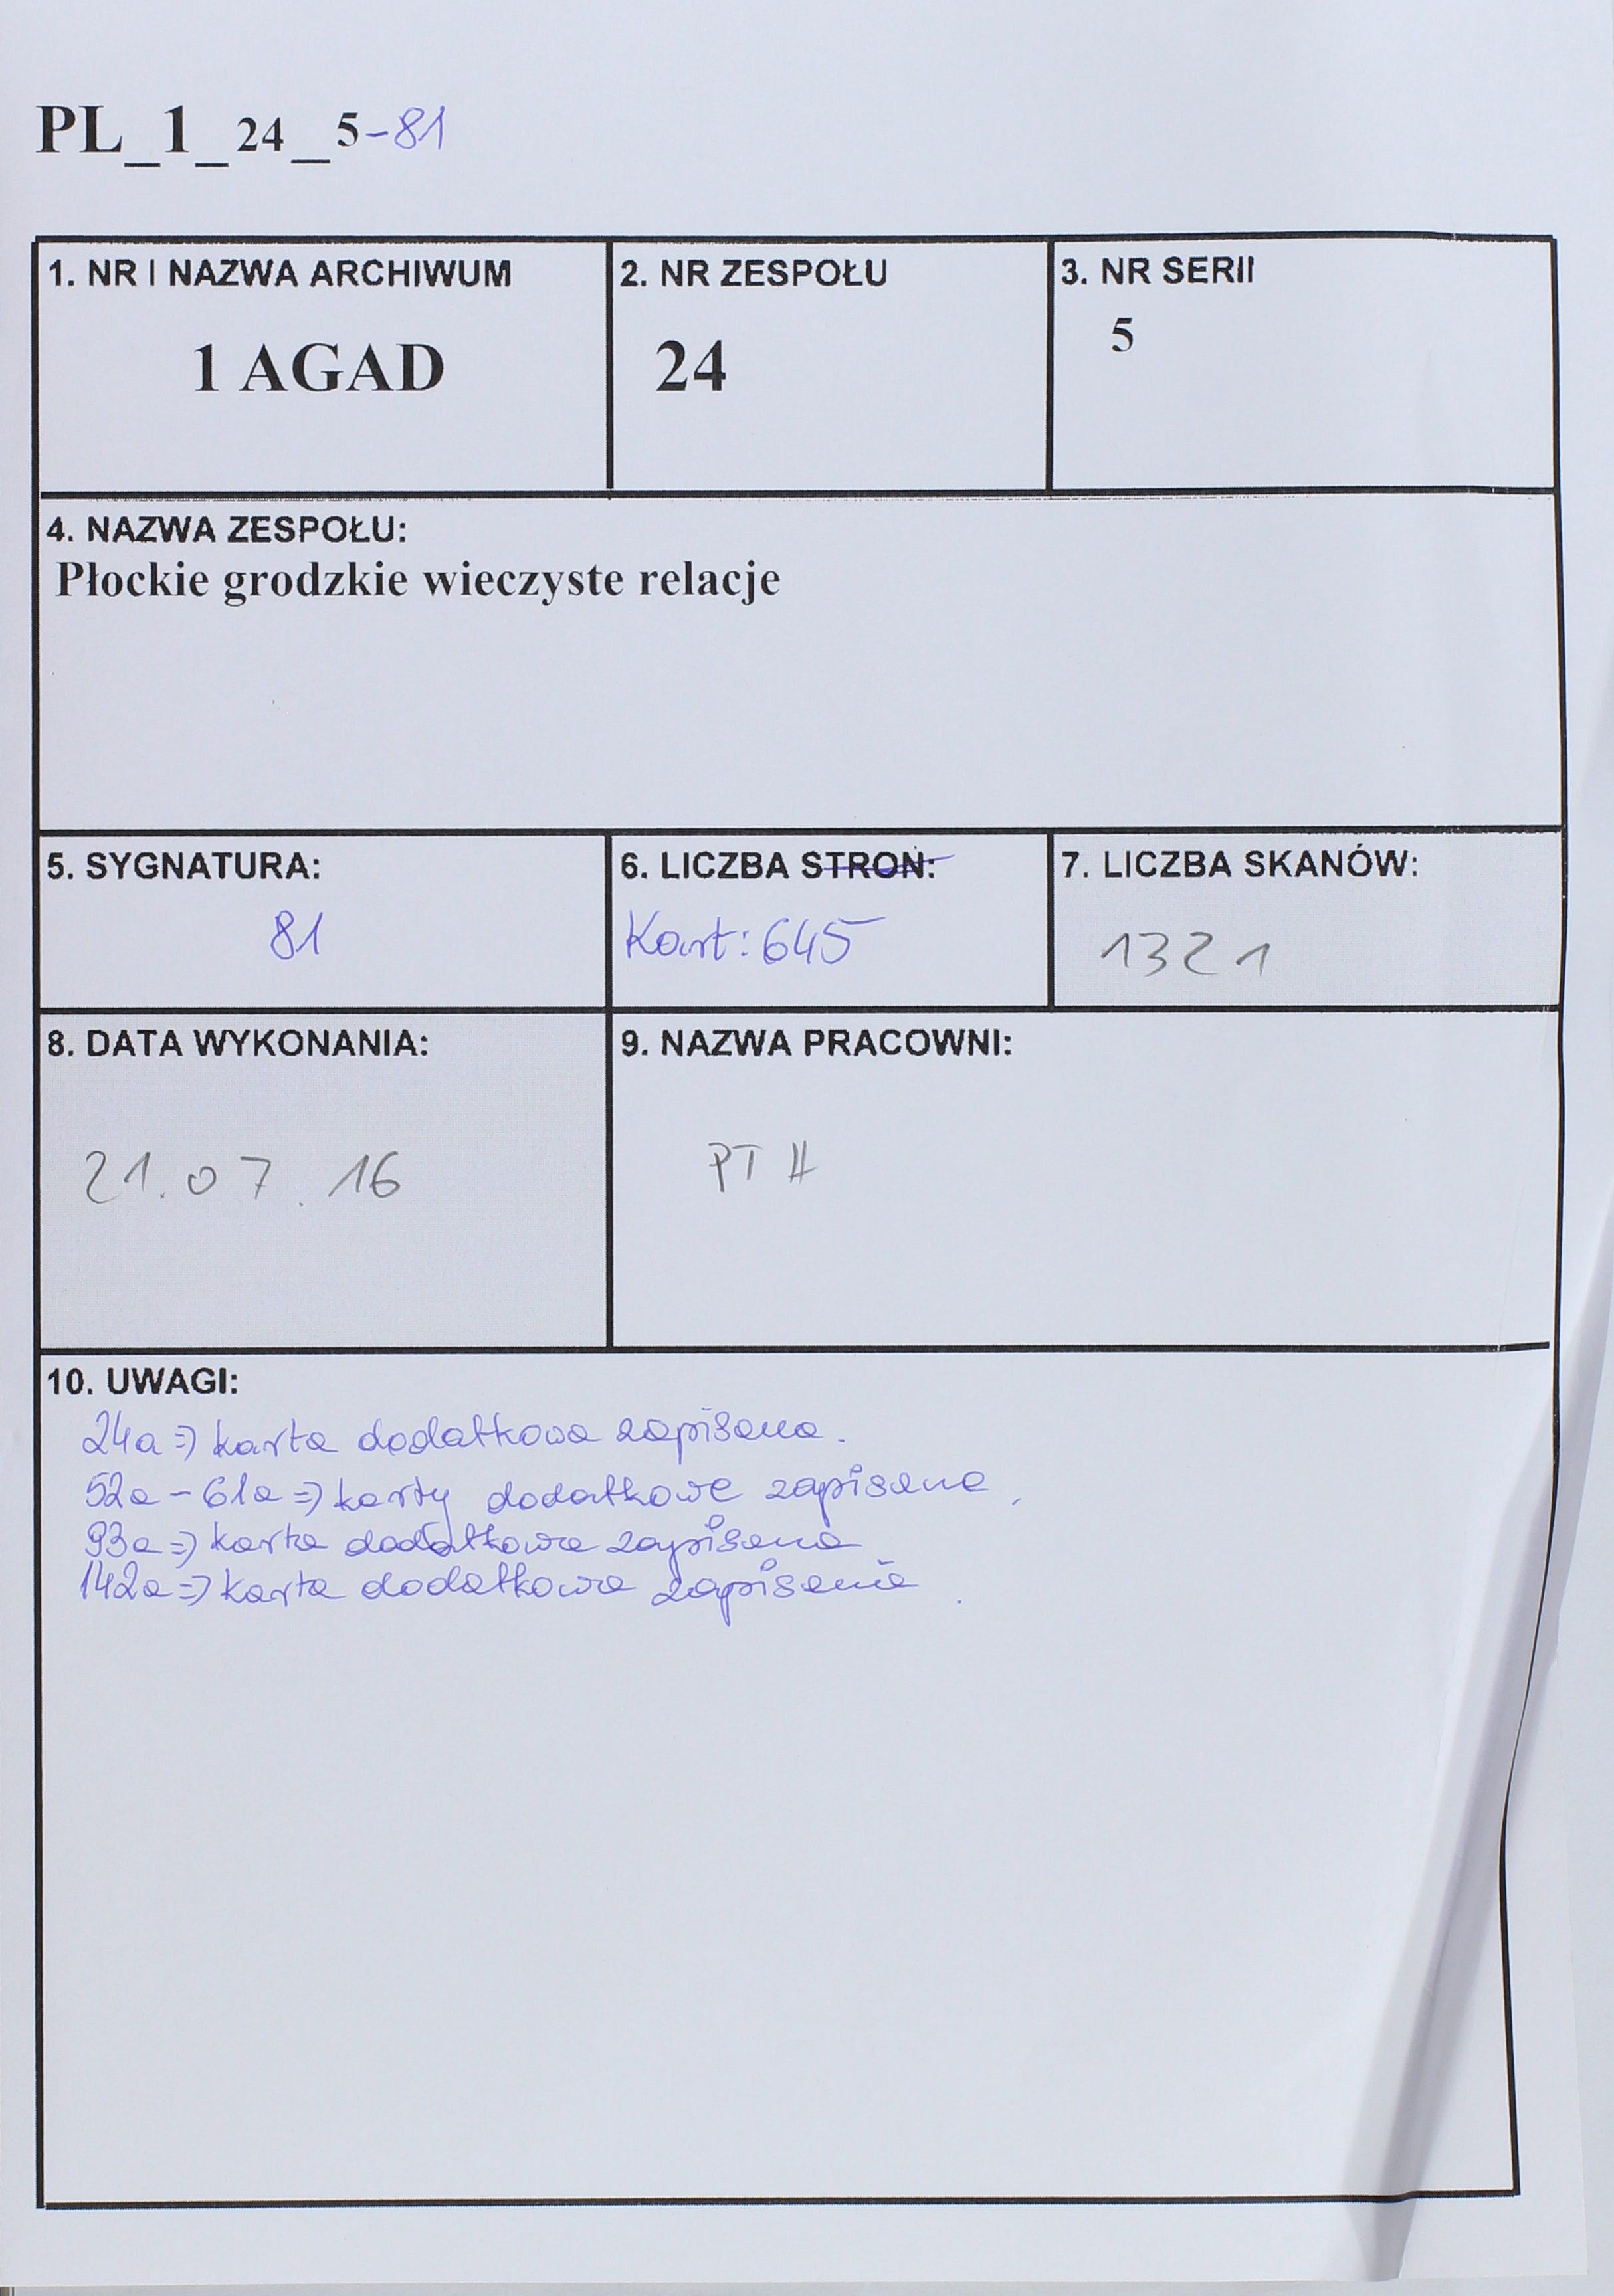 PL_1_24_5-81
1. NR I NAZWA ARCHIWUM
1 AGAD
2. NR ZESPOŁU
24
3. NR SERII
5
4. NAZWA ZESPOŁU:
Płockie grodzkie wieczyste relacje
5. SYGNATURA:
81
6. LICZBA STRON:
Kart: 645
7. LICZBA SKANÓW:
1321
8. DATA WYKONANIA:
21.07.16
9. NAZWA PRACOWNI:
PTH
10. UWAGI:
24a => karta dodatkowa zapisana.
52a - 61a => karty dodatkowe zapisane.
93a => karta dodatkowa zapisana
142a => karta dodatkowa zapisana.